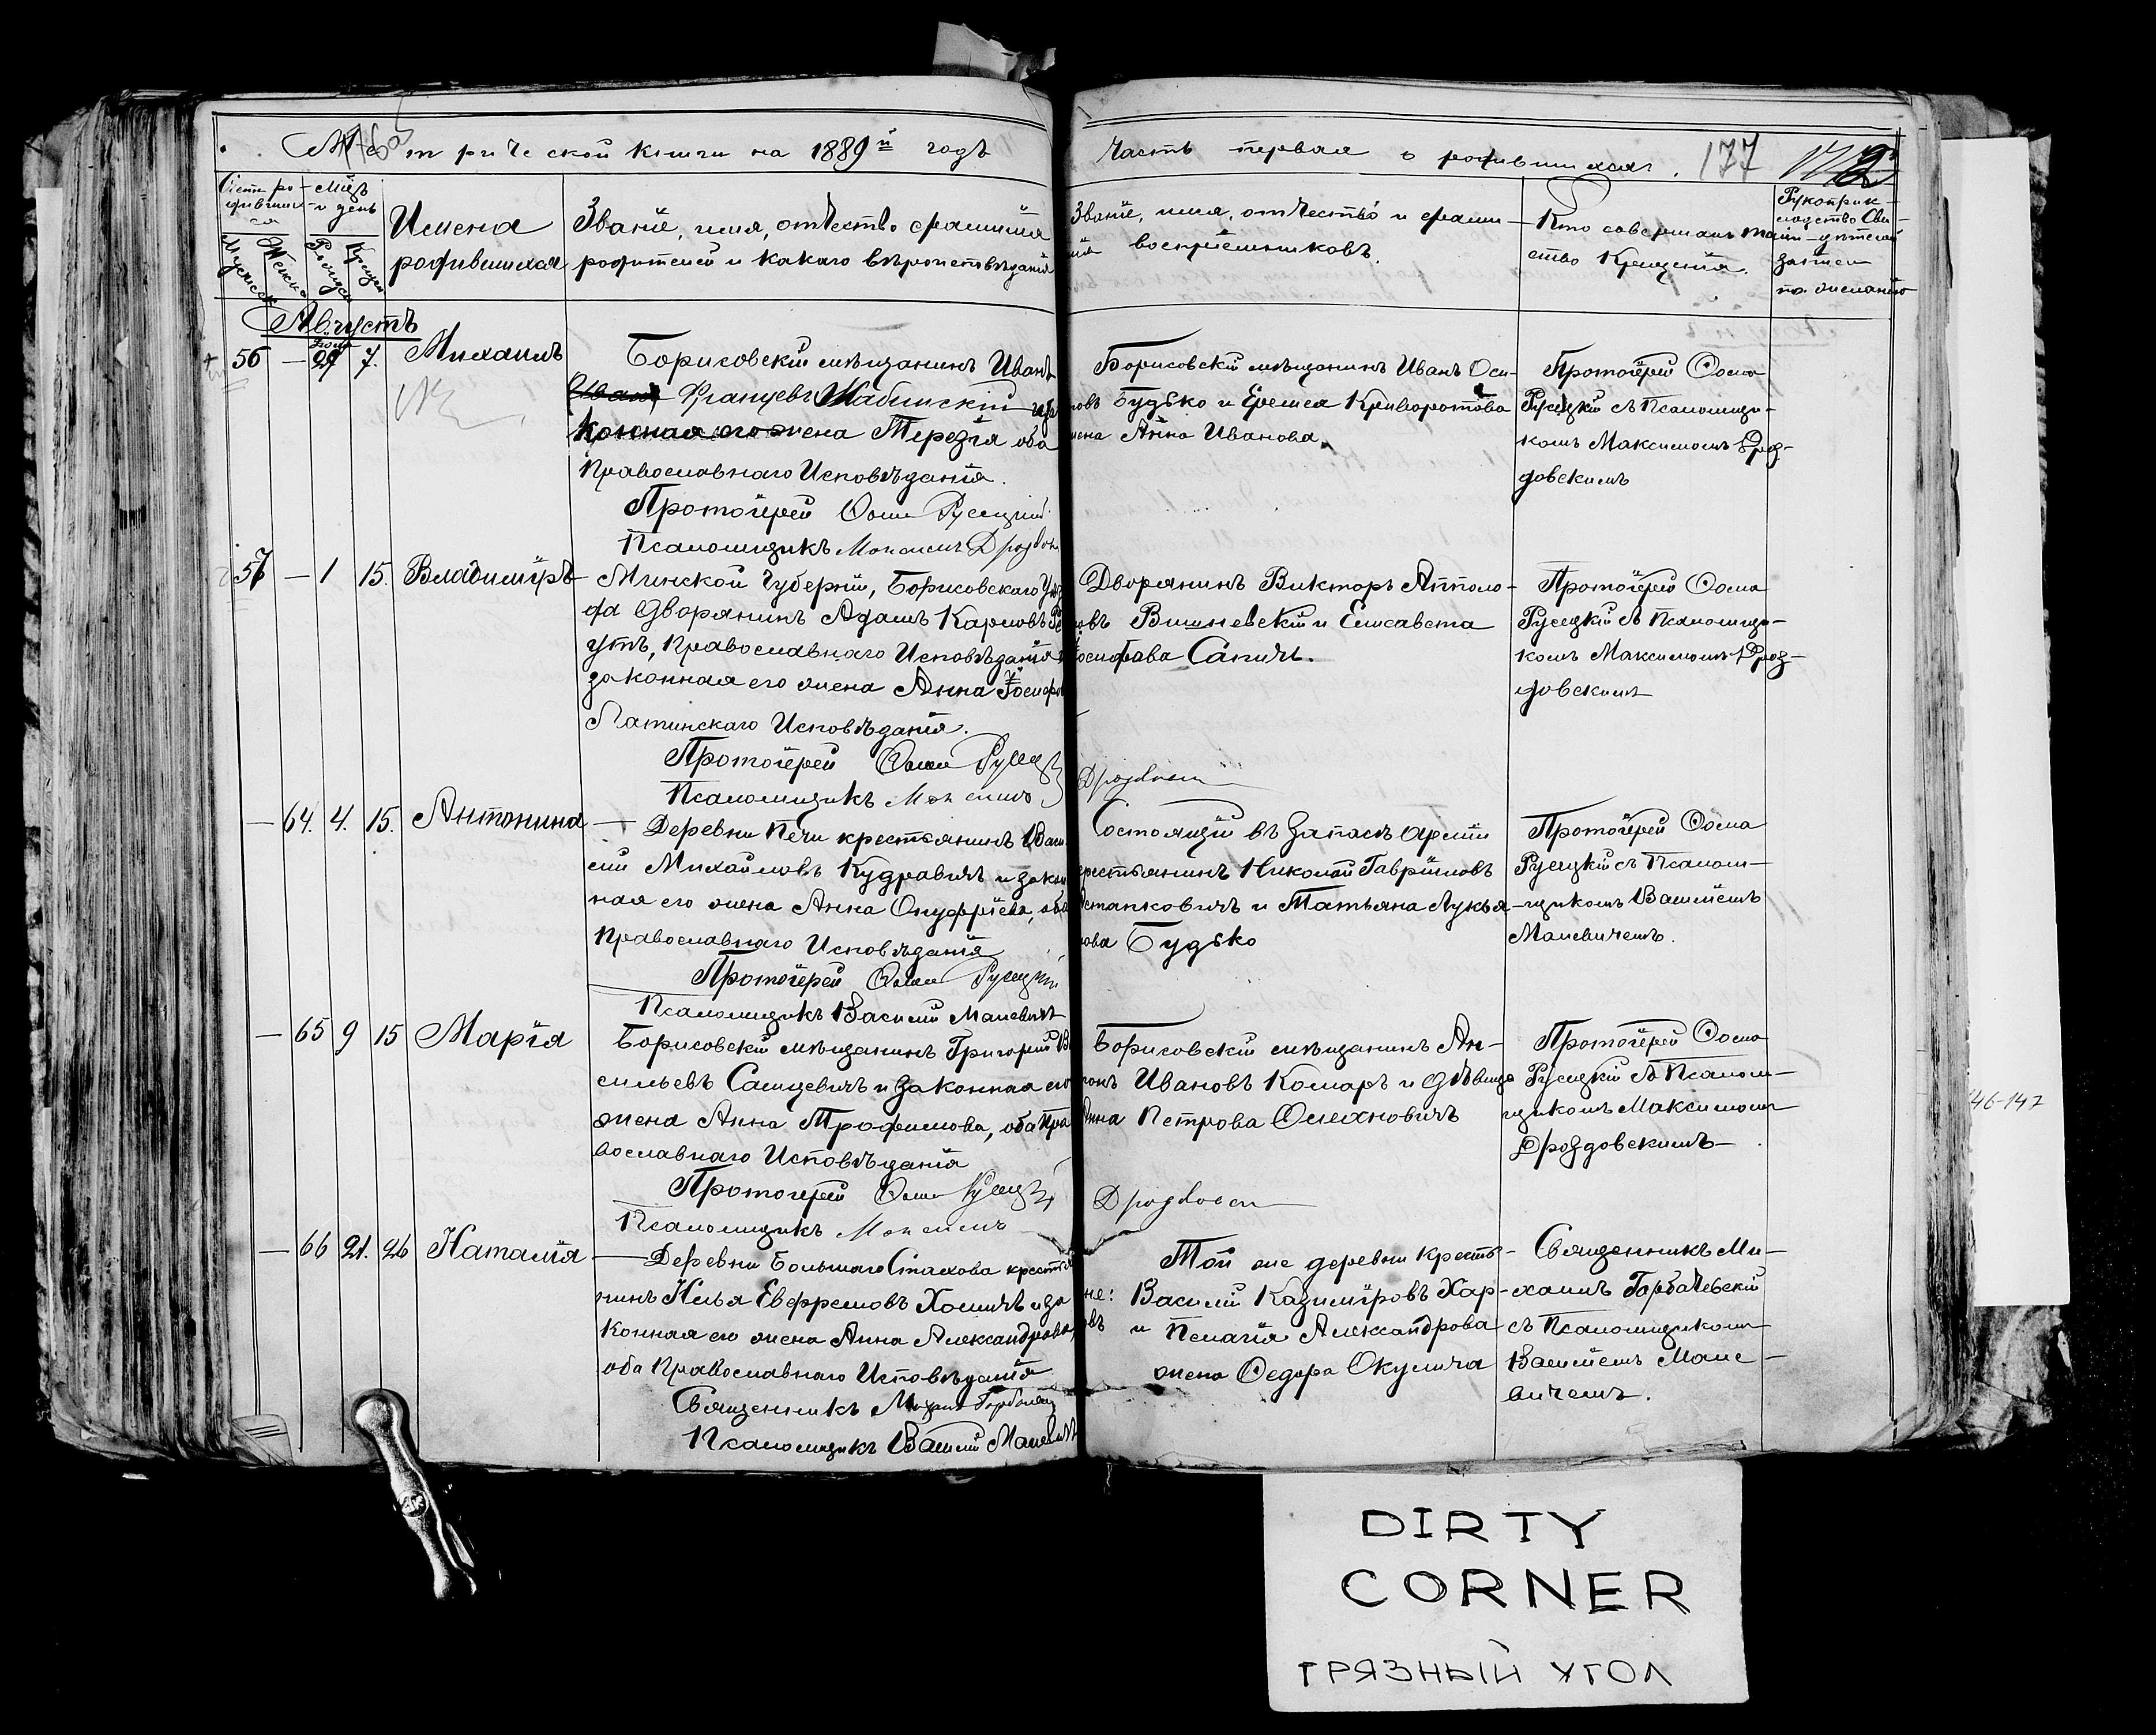 Метрической книги на 1889й годъ
Часть первая о родившихся. 177
Счетъ ро-
дившихся
Мужеска
Женска
Мсцъ
и день
Рожденія
Крещенія
Имена
родившихся
Званіе, имя, отчество фамилія
родителей и какого вѣроисповѣданія
Званіе, имя, отчество и фами-
лія воспріемниковъ.
Кто совершалъ таин-
ство Крещенія.
Рукоприк-
ладство Сви-
дѣтелей
записи
по желанію
Августъ
56 — 29 7. Михаилъ
Борисовскій мѣщанинъ Иванъ
Францевъ Жабинскій
жена Терезія оба
Православнаго Исповѣданія.
Протоіерей Ѳома Русецкій
Псаломщикъ Максимъ Дроздов
Борисовскій мѣщанинъ Иванъ Оси-
повъ Будько и Еремея Криворотова
жена Анна Иванова.
Протоіерей Ѳома
Русецкій съ Псаломщи-
комъ Максимомъ Дроз-
довскимъ
57 — 1 15. Владиміръ
Минской Губерніи, Борисовскаго Уѣз
да дворянинъ Адамъ Карловъ
утъ, Православнаго Исповѣданія и
законная его жена Анна Іосифо
Латинскаго Исповѣданія.
Протоіерей Ѳома Русецкій
Псаломщикъ Максимъ Дроздовскій
Дворянинъ Викторъ Апполо-
новъ Вишневскій и Елисавета
Іосифова Сапичъ.
Протоіерей Ѳома
Русецкій съ Псаломщи-
комъ Максимомъ Дроз-
довскимъ
— 64. 4. 15. Антонина
Деревни Печи крестьянинъ Васи
лій Михайловъ Кудравичъ и закон
ная его жена Анна Онуфріева, оба
Православнаго Исповѣданія
Протоіерей Ѳома Русецкій
Псаломщикъ Василій Малевичъ
Состоящій въ запасѣ арміи
крестьянинъ Николай Гавріиловъ
Астапковичъ и Татьяна Лукья-
нова Будько
Протоіерей Ѳома
Русецкій съ Псалом-
щикомъ Василіемъ
Малевичемъ.
— 65 9 15 Марія
Борисовскій мѣщанинъ Григорій Ва
сильевъ Сащевичъ и законная его
жена Анна Трофимова, оба Пра
вославнаго Исповѣданія
Протоіерей Ѳома Русецкій
Псаломщикъ Максимъ Дроздовскій
Борисовскій мѣщанинъ Ан-
тонъ Ивановъ Комаръ и дѣвица
Анна Петрова Олехновичъ
Протоіерей Ѳома
Русецкій съ Псалом-
щикомъ Максимомъ
Дроздовскимъ
— 66 21. 26 Наталія
Деревни Большаго Стахова крестья
нинъ Илья Евфремовъ Хомичъ и за
конная его жена Анна Александрова,
оба Православнаго Исповѣданія
Священникъ Михаилъ Горбачевскій
Псаломщикъ Василій Малевичъ
Той же деревни кресть-
не: Василій Казиміровъ Хар-
овъ и Пелагія Александрова
жена Ѳедора Окулича
Священникъ Ми-
хаилъ Горбачевскій
съ Псаломщикомъ
Василіемъ Мале-
вичемъ.
46-147
DIRTY
CORNER
ГРЯЗНЫЙ УГОЛ